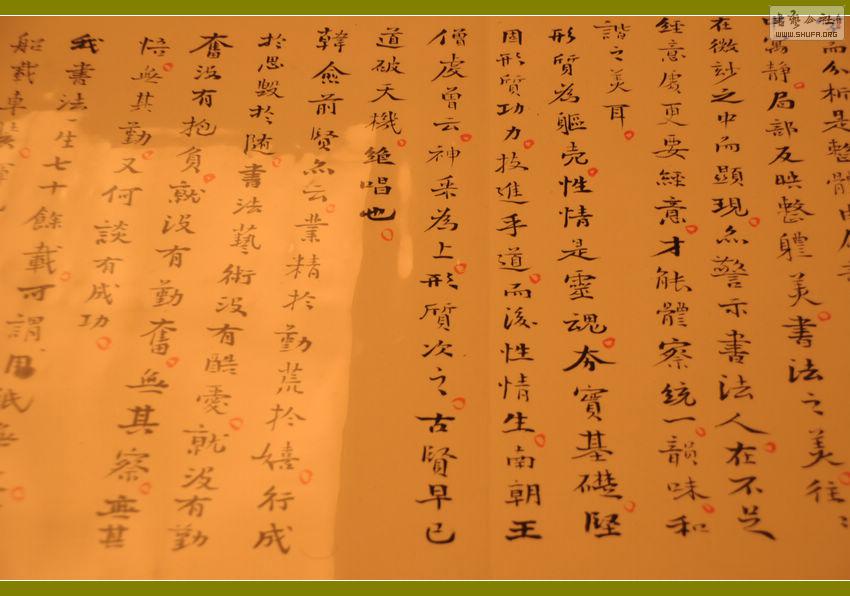 而分析是整體中
寓靜局部反映整體美書法之美往々
在微妙之中而顯現亦警示書法人在不足
經意處更要經意才能體察統一韻味和
諧之美耳
形質為軀壳性情是靈魂夯實基礎堅
固形質功力技進乎道而後性情生南朝王
僧虔曾云神采為上形質次之古賢早已
道破天機絕唱也
韓愈前賢亦云業精於勤荒於嬉行成
於思毀於隨書法藝術沒有酷愛就沒有勤
奮沒有抱負就沒有勤奮無其察無其
悟無其勤又何談有成功
我書法一生七十餘載可謂用紙無
船載車
書藝公社
WWW.SHUFA.ORG